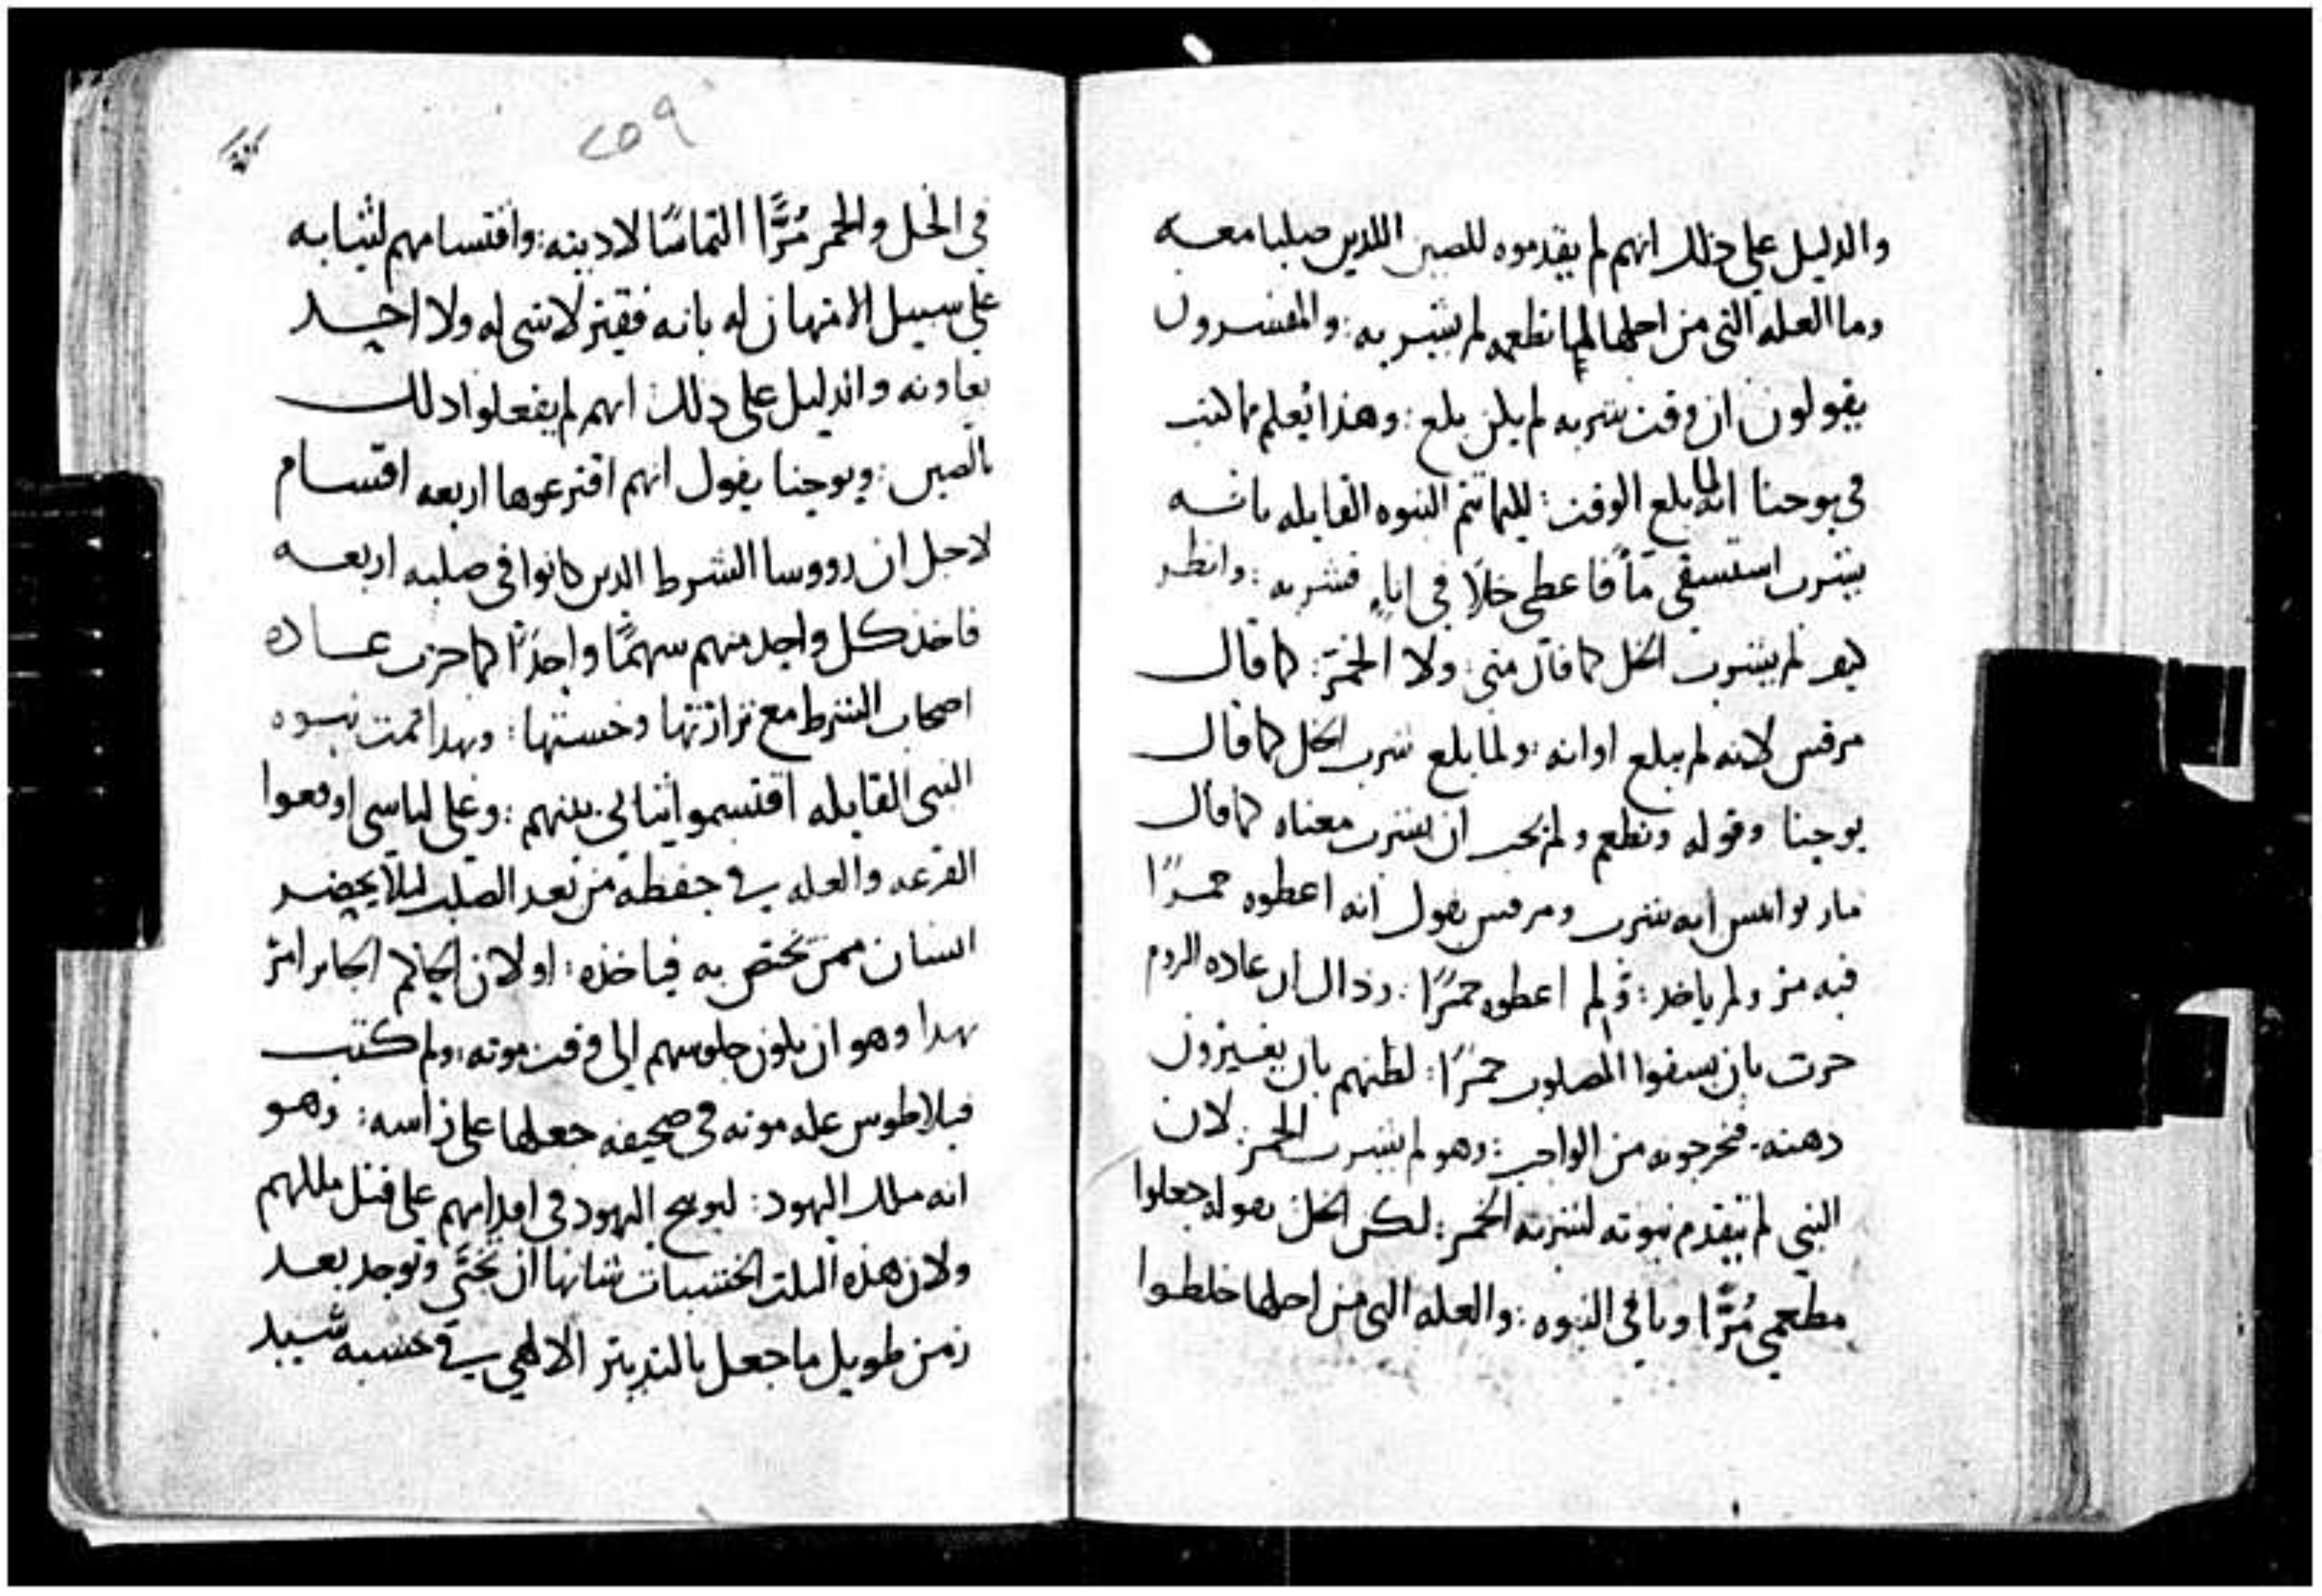 والدليل على ذلك انهم لم يقدموه للصين اللدين صلبا معه
وما العله التى من اجلها لما نطعمه لم يشربه : والمفسرون
يقولون ان وقت شربه لم يكن بلغ : وهذا يُعلم مما كتب
فى يوحنا انه لما بلغ الوقت : لكيما تتم النبوه القايله بانه
يشرب استسقى مآً فاعطى خلًا فى اناءٍ فشربه : وانظر
كيف لم يشرب الخل كما قال متى : ولا الخمر : كما قال
مرقس لانه لم يبلغ اوانه : ولما بلغ شرب الخل كما قال
يوحنا وقوله ونطعم ولم يحب ان يشرب معناه كما قال
مار يوانيس انه شرب ومرقس يقول انه اعطوه خمرًا
فيه مر ولم ياخذ : ولم اعطوه خمرًا : ان عاده الروم
جرت بان يسقوا المصلوب خمرًا : لظنهم بان يغيرون
دهنه . فيخرجونه من الواجب : وهو لم يشرب الخمر : لان
النبي لم تتقدم نبوته لشربه الخمر : لكن الخل بقوله جعلوا
مطعمي مُرًّا وباقى النبوه : والعله التى من اجلها خلطوا
٢٥٩
فى الخل والخمر مُرًّا التماسًا لاديته : واقتسامهم لثيابه
على سبيل الامتهان له بانه فقير لا شى له ولا احد
يعاونه والدليل على دلك انهم لم يفعلوا دلك
بالصين : ويوحنا يقول انهم اقترعوها اربعه اقتسام
لاجل ان رووسا الشرط الدين كانوا فى صلبه اربعه
فاخذ كل واحد منهم سهمًا واحدًا كما جرت عاده
اصحاب الشرط مع نزارتها وخستها : وبهدا تمت نبوه
النبى القايله اقتسموا ثيابى بينهم : وعلى لباسى اوقعوا
القرعه والعله في حفظه من بعد الصلب ليلا يحضر
انسان ممن يختص به فياخذه : او لان الحاكم الجاير امر
بهدا وهو ان يكون جلوسهم الى وقت موته : ولم كتب
فيلاطوس عله موته فى صحيفه جعلها على راسه : وهو
انه ملك اليهود : ليوبخ اليهود فى اقدامهم على قتل ملكهم
ولان هذه الثلت الخشبات شانها ان تخبَّى وتوجد بعد
زمن طويل ما جعل بالتدبير الالهي في خشبه سيد